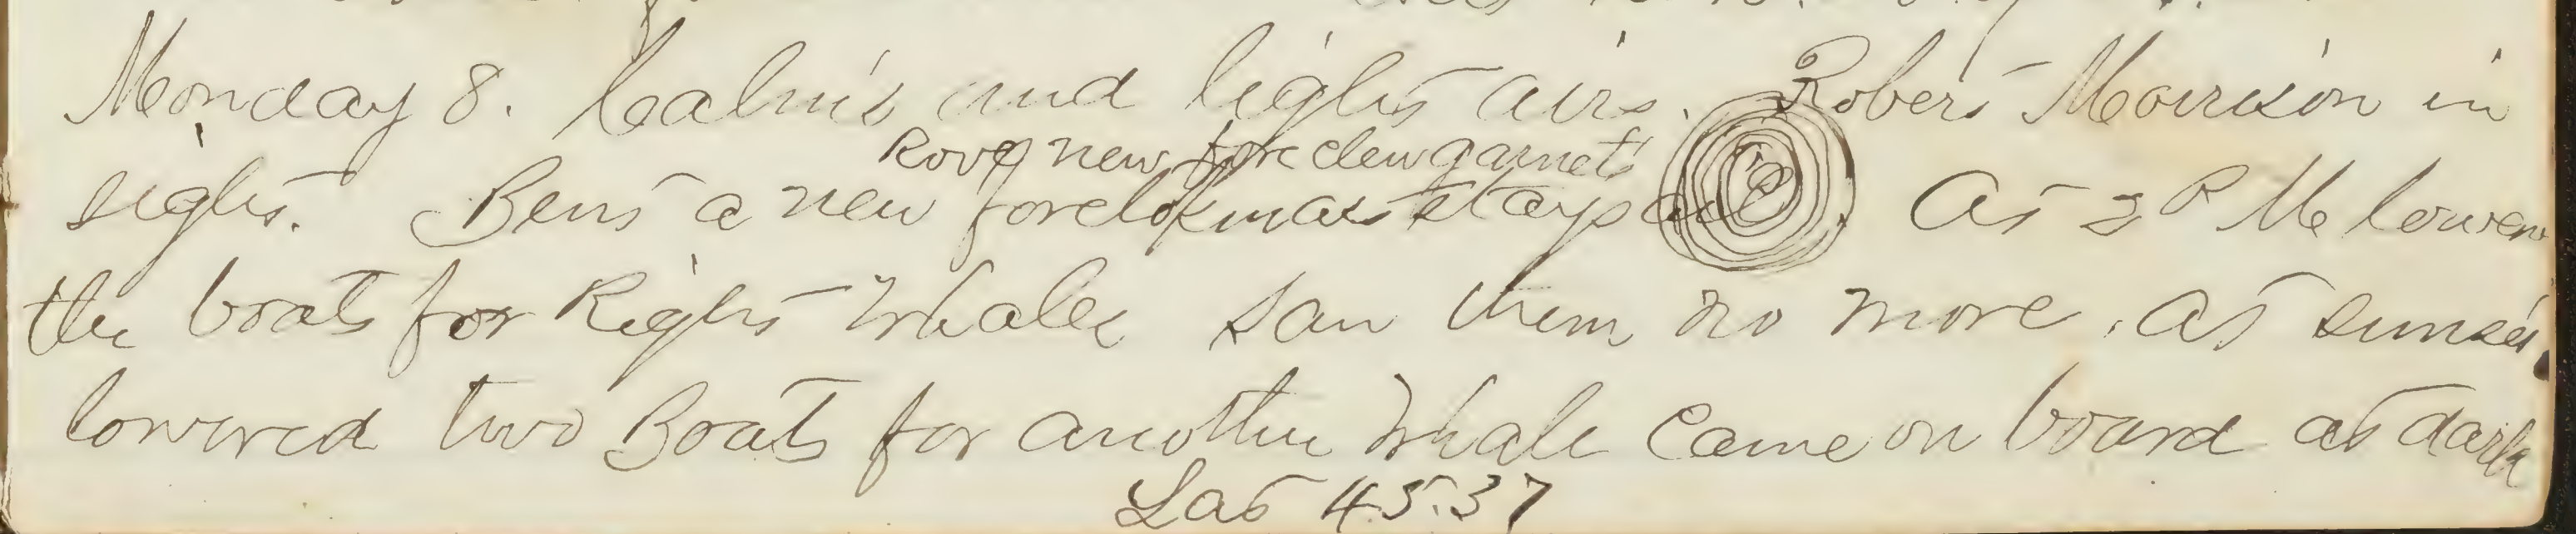 Monday 8. Calms and light airs. Robert Morrison in
Rove new fore clew garnets
sight. Bent a new foretopmast staysail. At 2 P M lowered
the boats for Right Whales saw them no more. at sunset
lowered two Boats for another Whale Came on board at dark
Lat 45.37